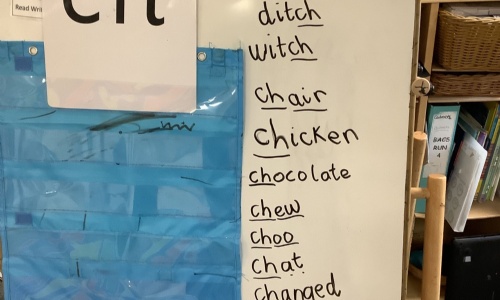 Read Wri
ch
ditch
witch
chair
chicken
chocolate
chew
choo
chat
changed
BACS
RUN
4